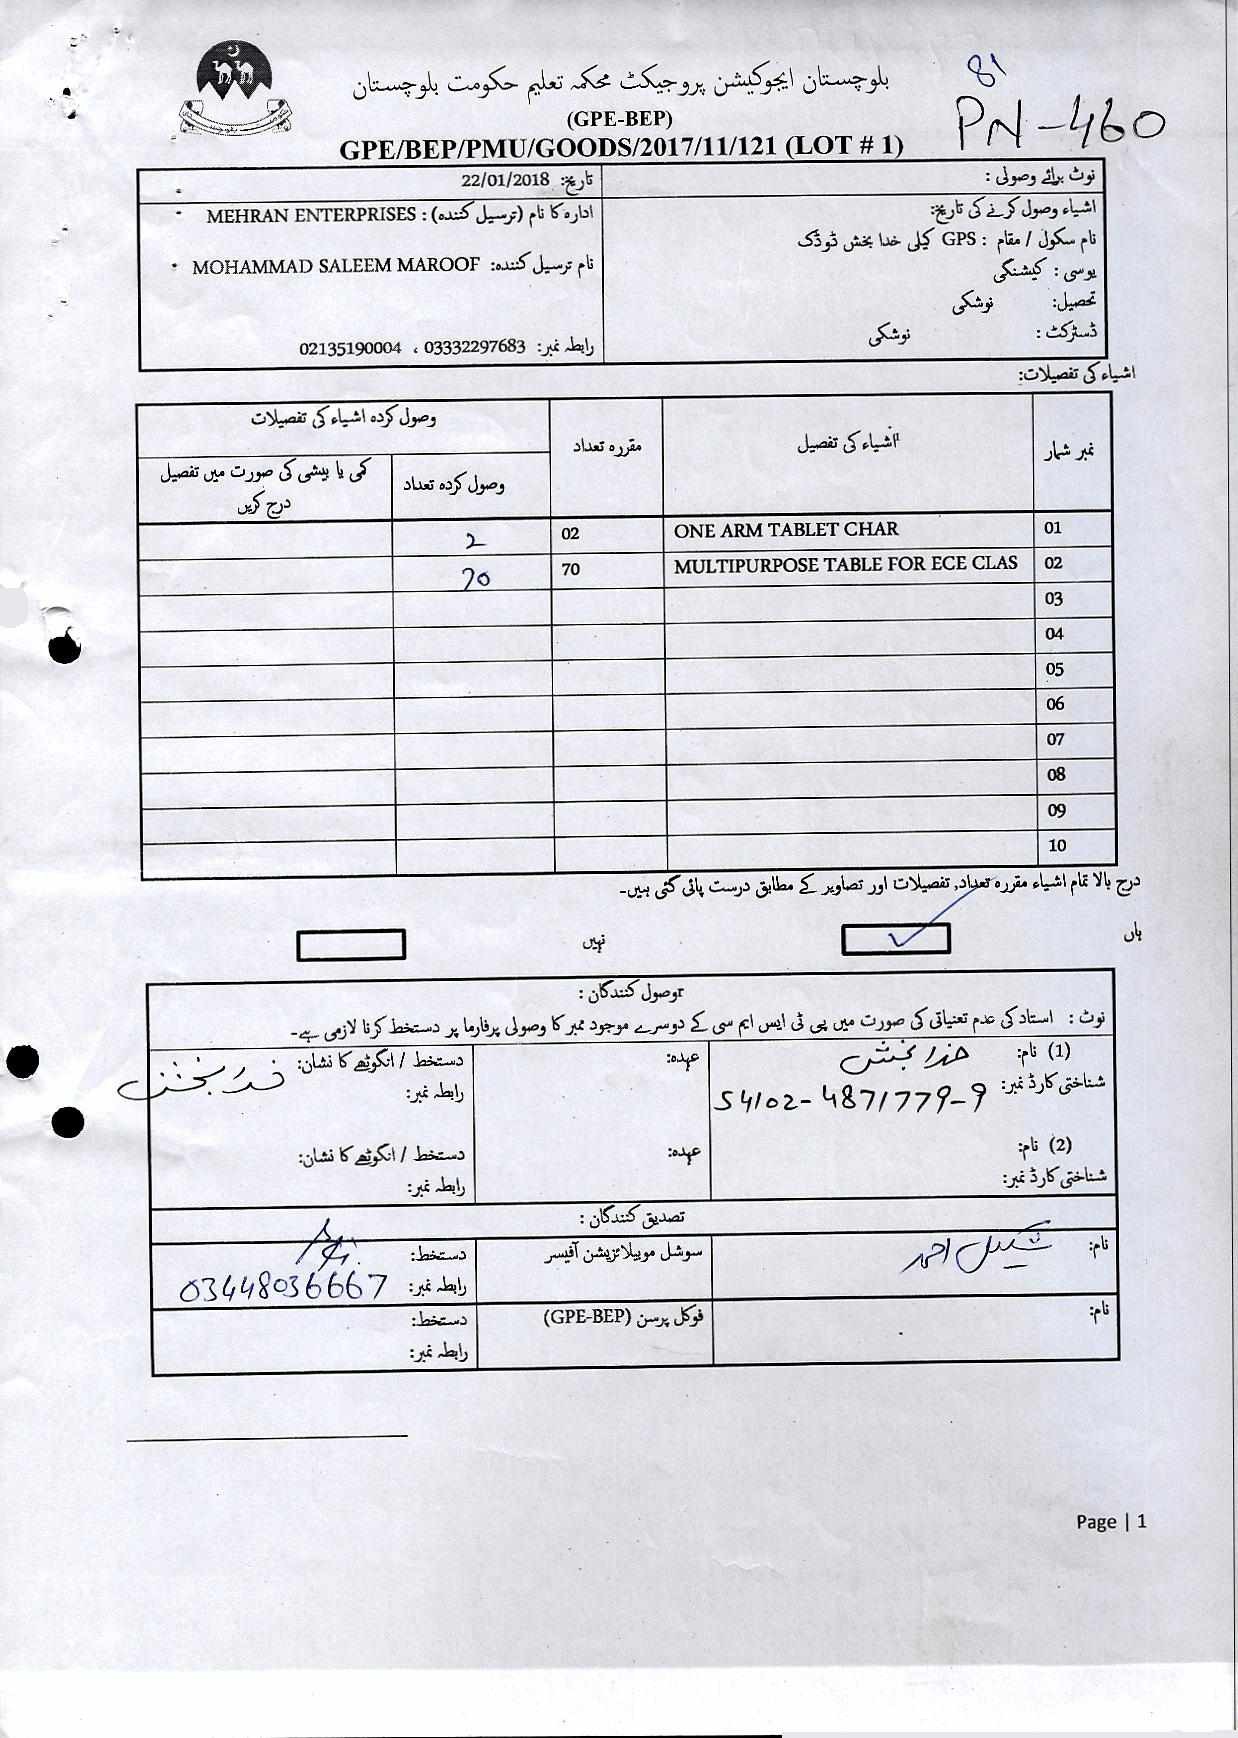 81
PN-460
بلوچستان ایجوکیشن پروجیکٹ محکمہ تعلیم حکومت بلوچستان
(GPE-BEP)
GPE/BEP/PMU/GOODS/2017/11/121 (LOT # 1)
نوٹ برائے وصولی :
تاریخ: 22/01/2018
اشیاء وصول کرنے کی تاریخ:
ادارہ کا نام (ترسیل کنندہ) : MEHRAN ENTERPRISES
نام سکول / مقام : GPS کیلی خدا بخش ڈوڈک
نام ترسیل کنندہ: MOHAMMAD SALEEM MAROOF
یوسی : کیشنگی
تحصیل: نوشکی
ڈسٹرکٹ : نوشکی
رابطہ نمبر: 03332297683 ، 02135190004
اشیاء کی تفصیلات:
نمبر شمار اشیاء کی تفصیل مقررہ تعداد وصول کردہ اشیاء کی تفصیلات
وصول کردہ تعداد کمی یا بیشی کی صورت میں تفصیل درج کریں
01 ONE ARM TABLET CHAR 02 2
02 MULTIPURPOSE TABLE FOR ECE CLAS 70 70
03
04
05
06
07
08
09
10
درج بالا تمام اشیاء مقررہ تعداد, تفصیلات اور تصاویر کے مطابق درست پائی گئی ہیں۔
ہاں ✓ نہیں
وصول کنندگان :
نوٹ : استاد کی عدم تعنیاتی کی صورت میں پی ٹی ایس ایم سی کے دوسرے موجود ممبر کا وصولی پرفارما پر دستخط کرنا لازمی ہے۔
(1) نام: خدا بخش عہدہ: دستخط / انگوٹھے کا نشان: خدا بخش
شناختی کارڈ نمبر: 54102-4871779-9 رابطہ نمبر:
(2) نام: عہدہ: دستخط / انگوٹھے کا نشان:
شناختی کارڈ نمبر: رابطہ نمبر:
تصدیق کنندگان :
نام: شکیل احمد سوشل موبیلائزیشن آفیسر دستخط:
رابطہ نمبر: 03448036667
نام: فوکل پرسن (GPE-BEP) دستخط:
رابطہ نمبر:
Page | 1